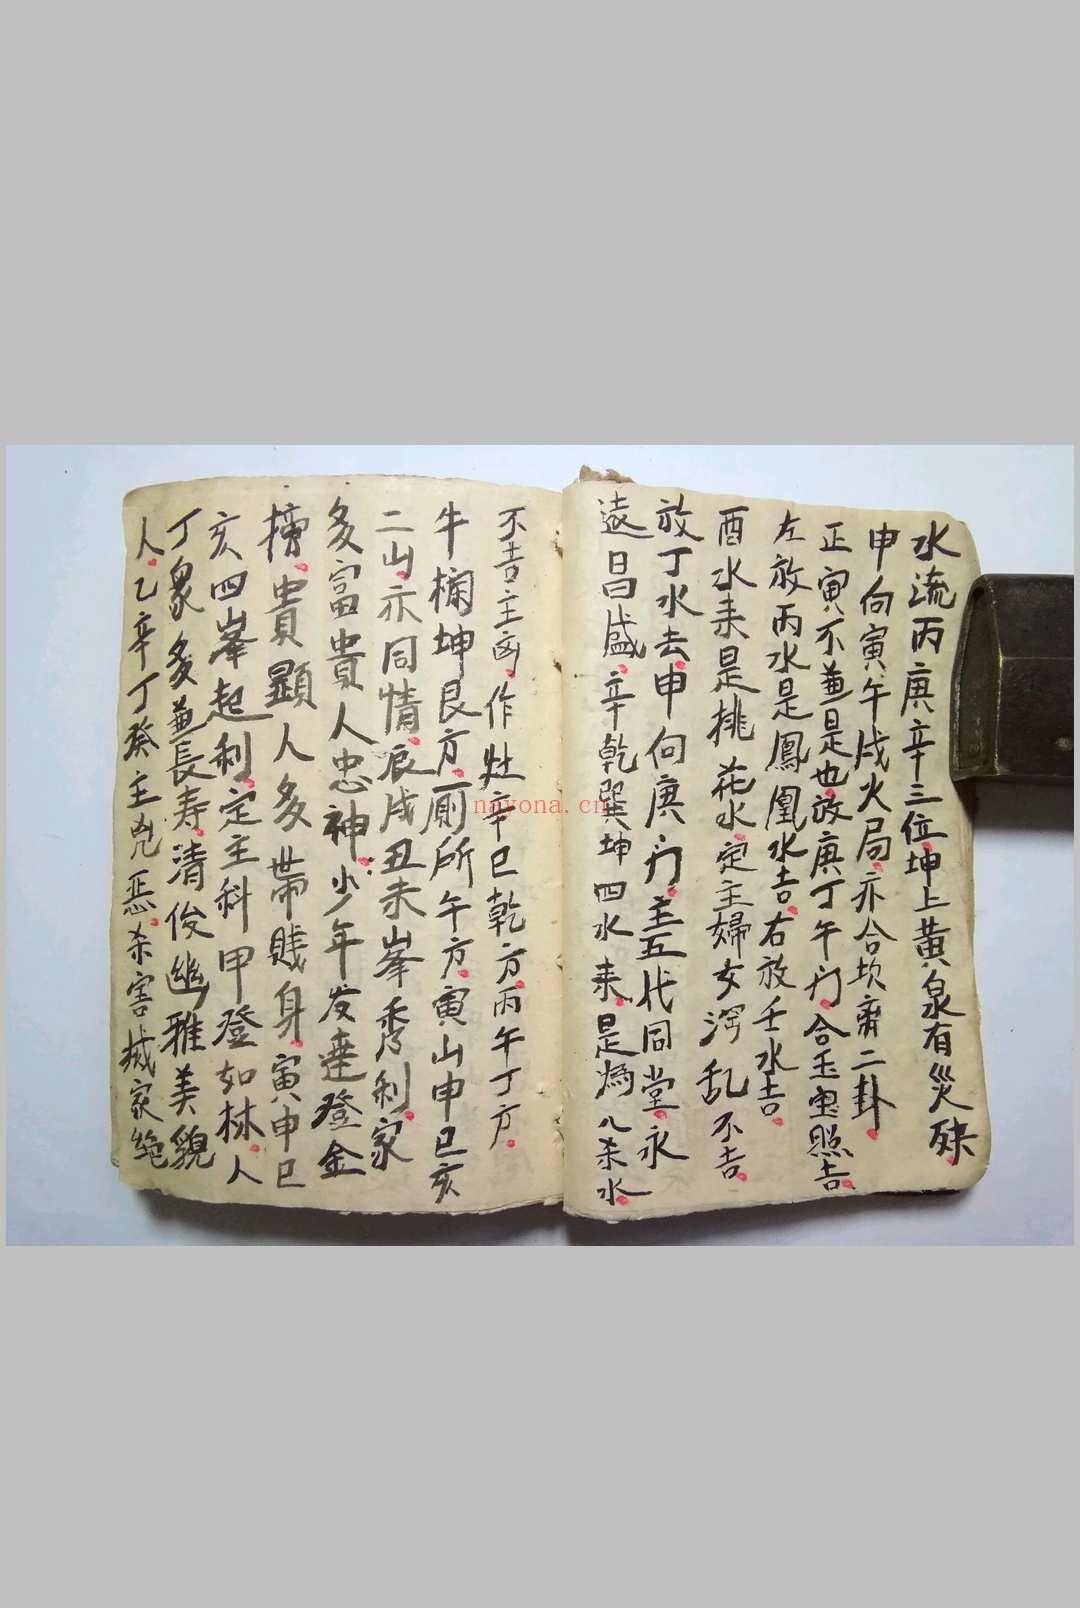 水流丙庚辛三位坤上黄泉有災殃
申向寅午戌火局亦合坎齊二卦
正寅不兼是也放庚丁午门合玉電照吉
左放丙水是鳳凰水吉右放壬水吉
酉水来是桃花水定主婦女淫乱不吉
放丁水去申向庚门主五代同堂永
遠昌盛辛乾巽坤四水来是為八杀水
不吉主凶作灶辛巳乾方丙午丁方
牛欄坤艮方厠所午方寅山申巳亥
二山亦同情辰戌丑未峯秀利家
多富貴人忠神少年发達登金
榜貴顕人多帶賤身寅申巳
亥四峯起利定主科甲登如林人
丁衆多兼長寿清俊幽雅美貌
人乙辛丁癸主兇惡杀害掀家絶
nayona.cn